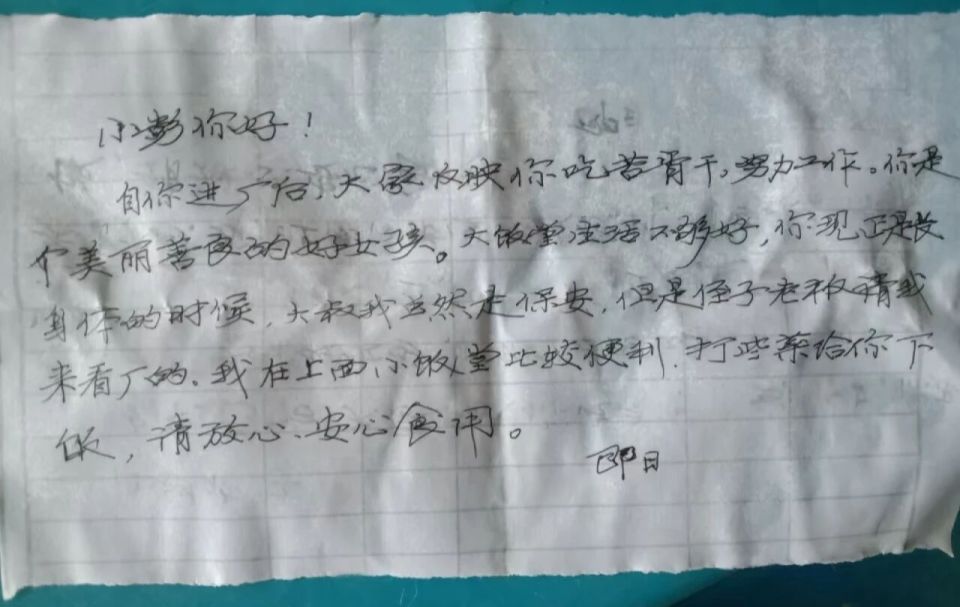 小彭你好！
自你进厂后，大家反映你吃苦肯干，努力工作。你是
个美丽善良的好女孩。大饭堂生活不够好，你现正是长
身体的时候，大叔我当然是保安，但是侄子老板请我
来看厂的。我在上面小饭堂比较便利．打些菜给你下
饭，请放心、安心食用。
即日